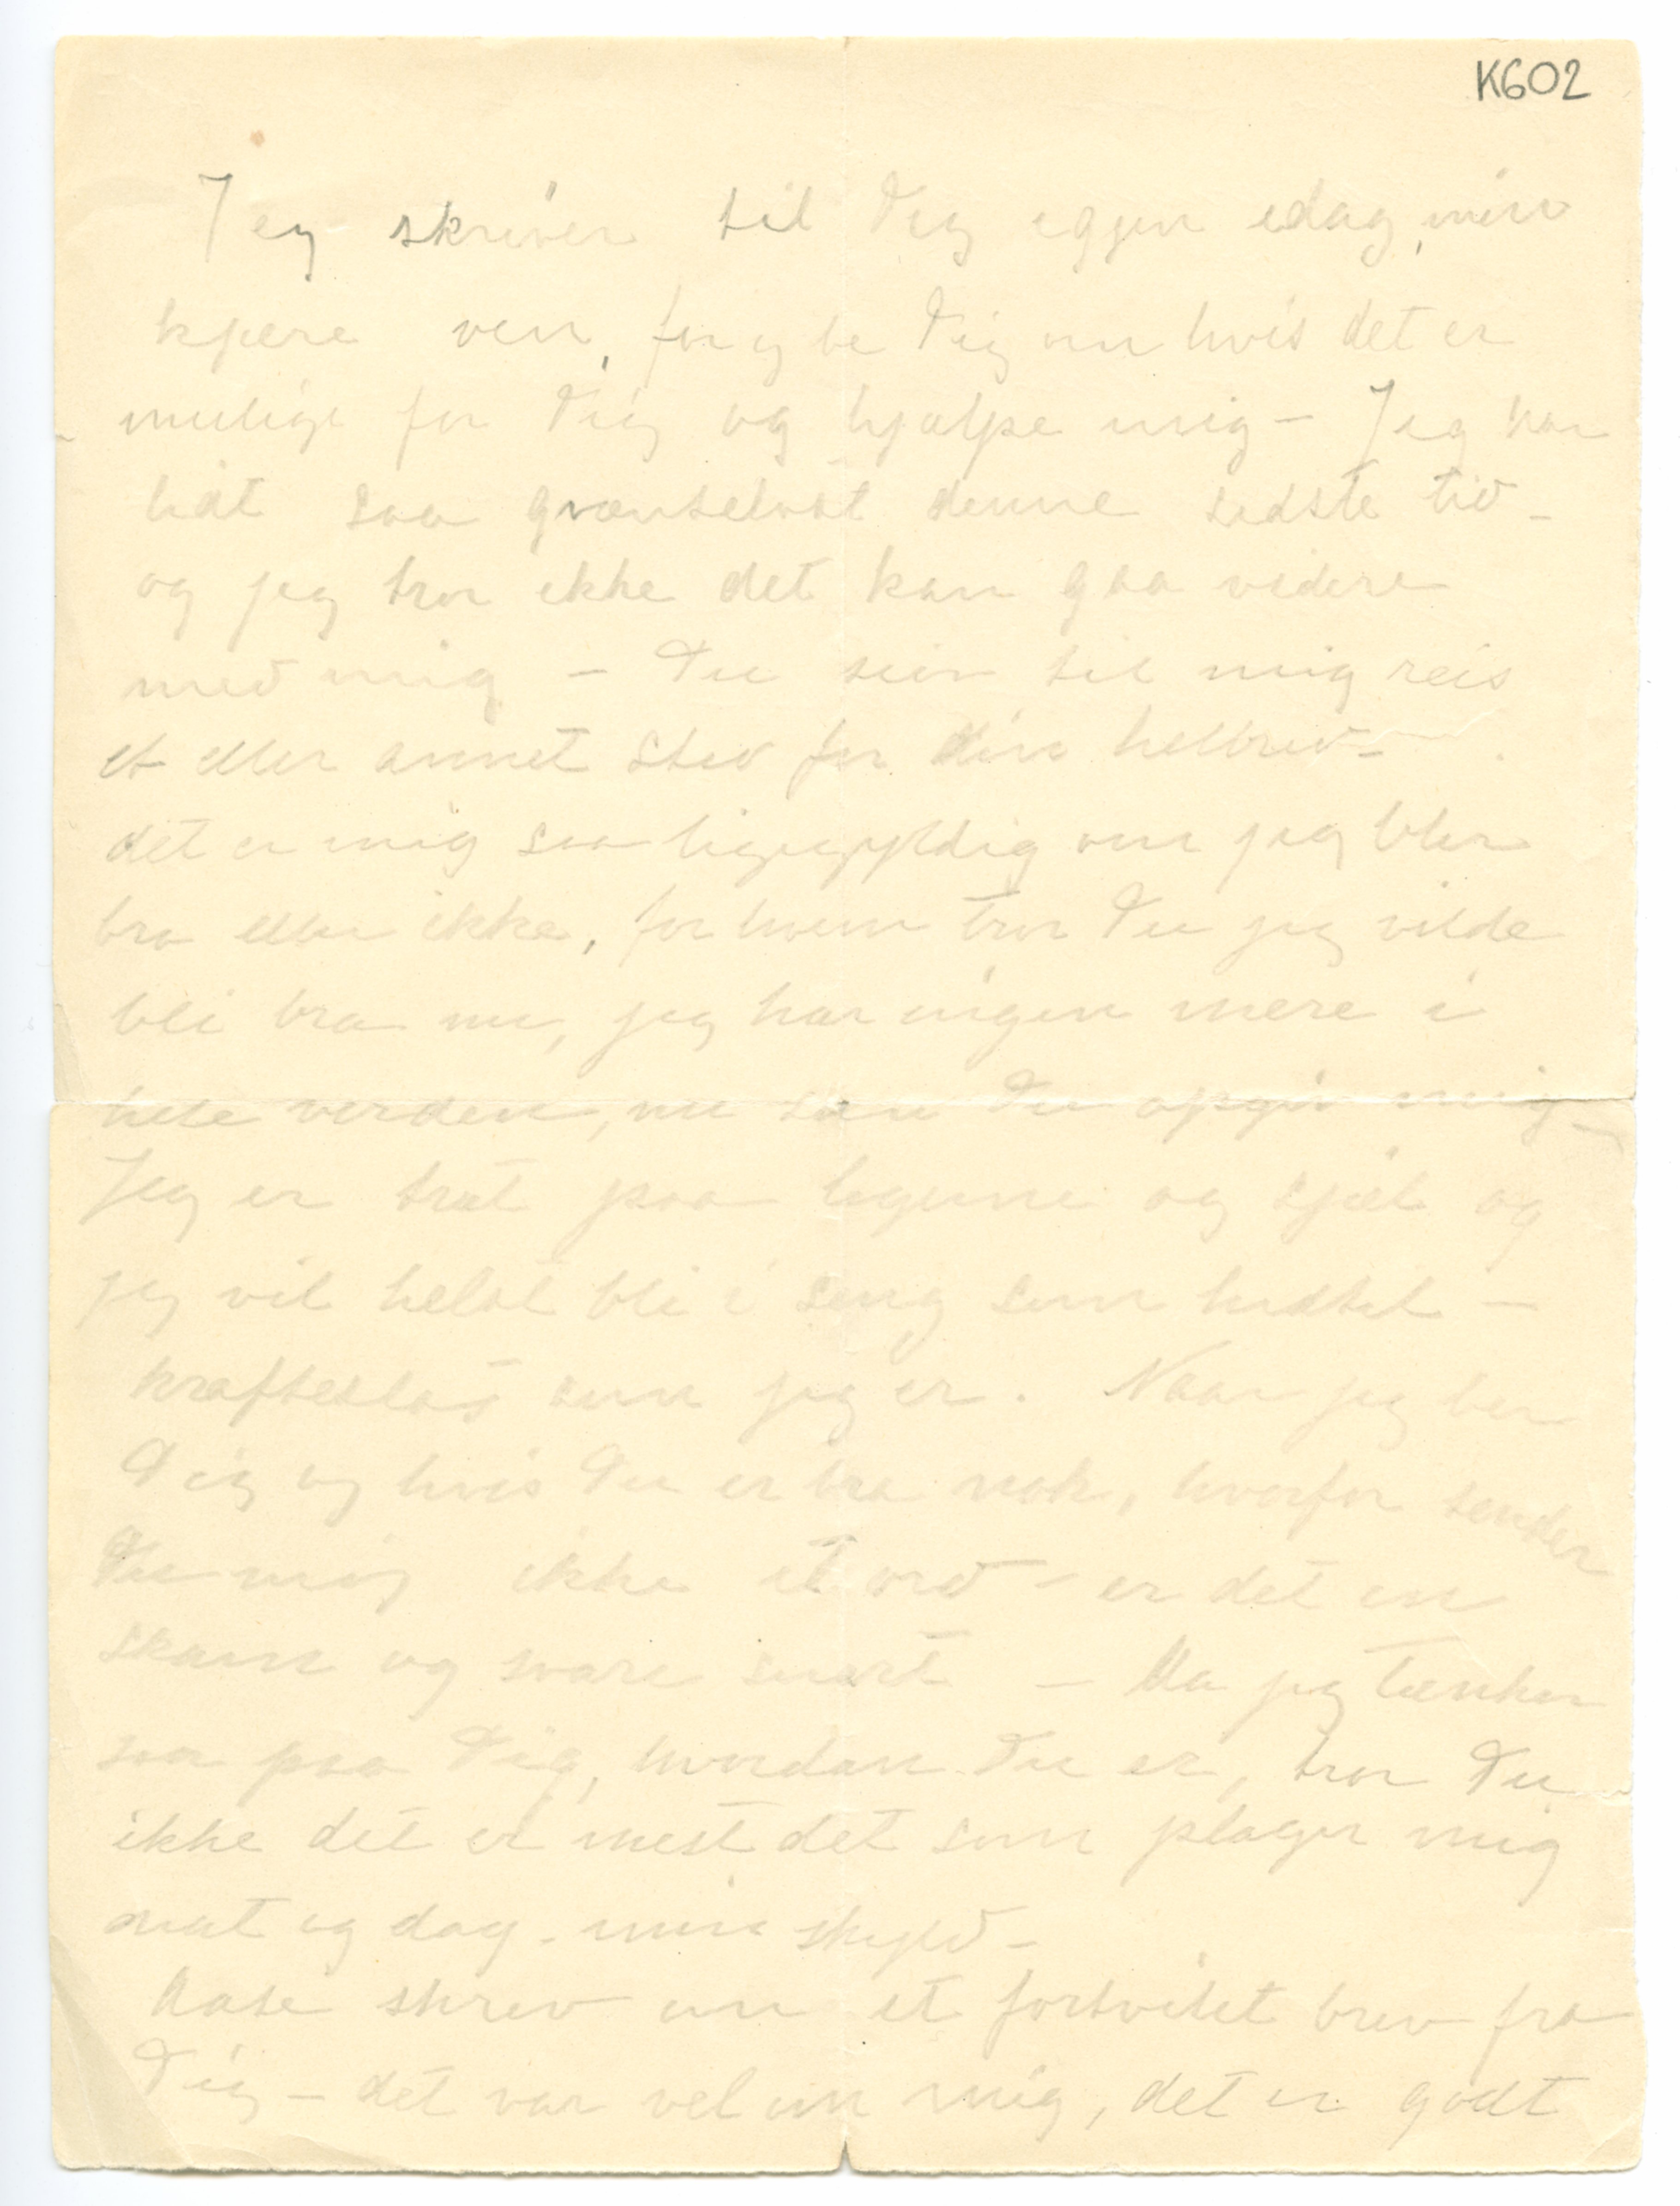 K602
Jeg skriver til Dig igjen idag, min
kjære ven, for og be Dig om hvis det er
mulig for Dig og hjælpe mig – Jeg har
lidt saa grænseløst denne sidste tid –
og jeg tror ikke det kan gaa videre
med mig – Du sier til mig reis
et eller annet sted for din helbred –
det er mig saa ligegyldig om jeg blir
bra eller ikke, for hvem tror Du jeg vilde
bli bra nu, jeg har ingen mere i
hele verden, nu da Du opgir mig –
Jeg er træt paa legeme og sjæl og
jeg vil helst bli i seng som hidtil –
kraftesløs som jeg er. Naar jeg ber
Dig og hvis Du er bra nok, hvorfor sender
Du mig ikke et ord – er det en
skam og svare snart – Aa jeg tænker
saa paa Dig, hvordan Du er, tror Du
ikke det er mest det som plager mig
nat og dag – min skyld –
Aase skrev om et fortvilet brev fra
Dig – det var vel om mig, det er godt